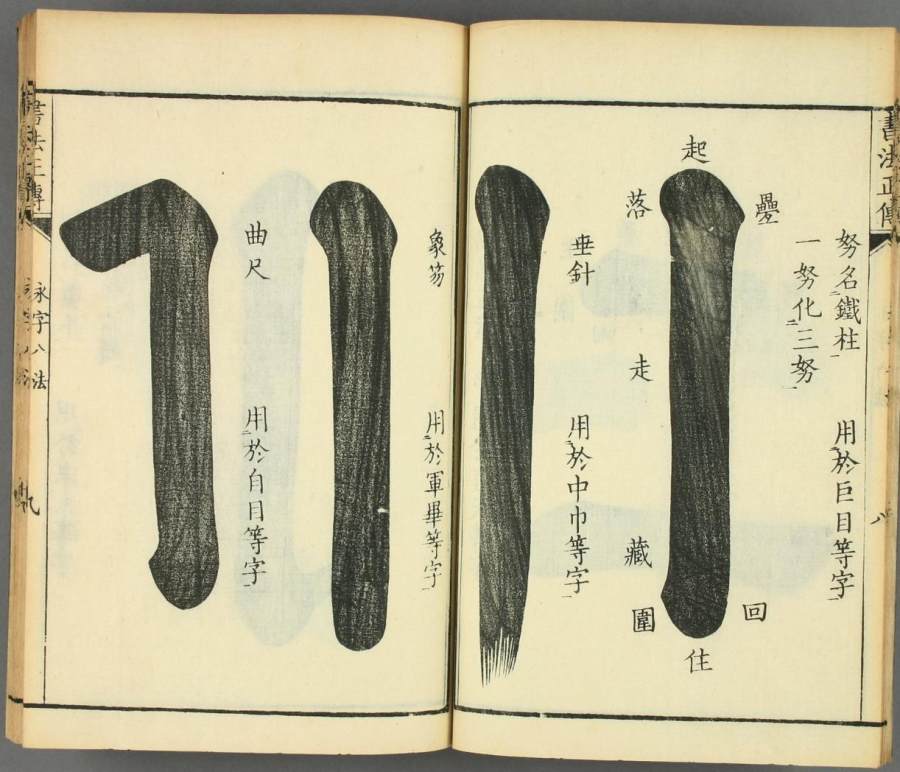 書法正傳
八
努名鐵柱 用於巨目等字
一努化三努
疊
回
起
住
落
走
藏
圍
垂針 用於中巾等字
象笏 用於軍畢等字
曲尺 用於自目等字
書法正傳
永字八法
九